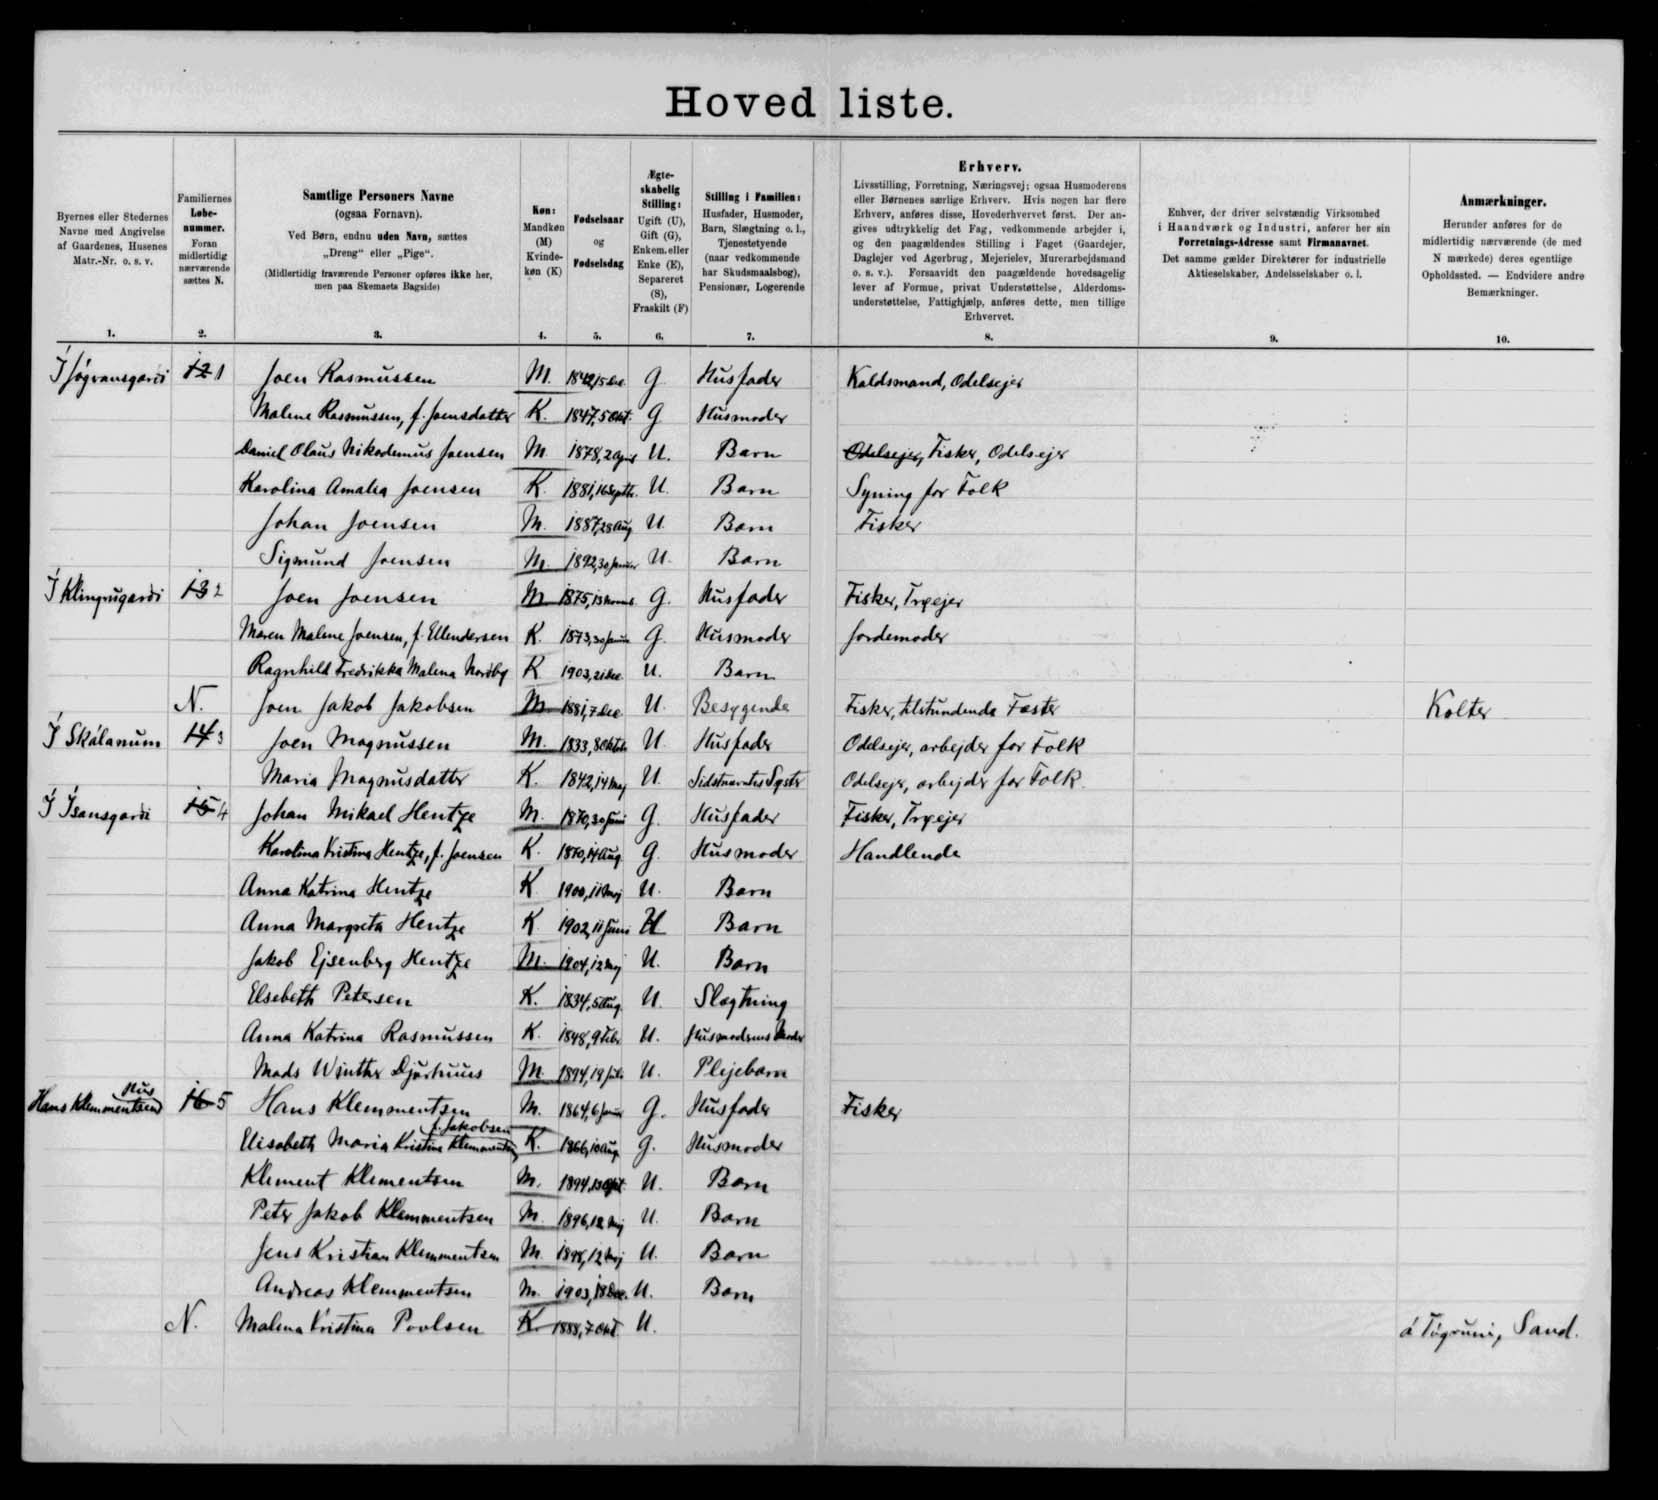 Hovedliste.
Byernes eller Stedernes Navne med Angivelse af Gaardenes, Husenes Matr.-Nr. o. s. v.
Familiernes Løbe-nummer. Foran midlertidig nærværende sættes N.
Samtlige Personers Navne (ogsaa Fornavn). Ved Børn, endnu uden Navn, sættes „Dreng“ eller „Pige“. (Midlertidig fraværende Personer opføres ikke her, men paa Skemaets Bagside)
Køn: Mandkøn (M) Kvinde-køn (K)
Fødselsaar og Fødselsdag
Ægte-skabelig Stilling: Ugift (U), Gift (G), Enkem. eller Enke (E), Separeret (S), Fraskilt (F)
Stilling i Familien: Husfader, Husmoder, Barn, Slægtning o. l., Tjenestetyende (naar vedkommende har Skudsmaalsbog), Pensionær, Logerende
Erhverv. Livsstilling, Forretning, Næringsvej; ogsaa Husmoderens eller Børnenes særlige Erhverv. Hvis nogen har flere Erhverv, anføres disse, Hovederhvervet først. Der an-gives udtrykkelig det Fag, vedkommende arbejder i, og den paagældendes Stilling i Faget (Gaardejer, Daglejer ved Agerbrug, Mejerielev, Murerarbejdsmand o. s. v.). Forsaavidt den paagældende hovedsagelig lever af Formue, privat Understøttelse, Alderdoms-understøttelse, Fattighjælp, anføres dette, men tillige Erhvervet.
Enhver, der driver selvstændig Virksomhed i Haandværk og Industri, anfører her sin Forretnings-Adresse samt Firmanavnet. Det samme gælder Direktører for industrielle Aktieselskaber, Andelsselskaber o. l.
Anmærkninger. Herunder anføres for de midlertidig nærværende (de med N mærkede) deres egentlige Opholdssted. — Endvidere andre Bemærkninger.
1. 2. 3. 4. 5. 6. 7. 8. 9. 10.
Í Jógvansgarði 12 1 Joen Rasmussen M. 1842, 15 Dec. G Husfader Kaldsmand, Odelsejer
Malene Rasmussen, f. Joensdatter K. 1847, 5 Okt. G Husmoder
Daniel Olaus Nikodemus Joensen M. 1878, 2 April U. Barn Odelsejer, Fisker, Odelsejer
Karolina Amalia Joensen K. 1881, 16 Septbr. U. Barn Syning for Folk
Johan Joensen M. 1887, 28 Aug U. Barn Fisker
Sigmund Joensen M. 1892, 30 Januar U. Barn
Í Klingrugarði 13 2 Joen Joensen M 1875, 13 G. Husfader Fisker, Trøejer
Maren Malene Joensen, f. Ellendersen K. 1873, 30 G. Husmoder Jordemoder
Ragnhild Fredrikka Malena Nordby K 1903, 21 Dec. U. Barn
N. Joen Jakob Jakobsen M 1881, 7 Dec. U. Besøgende Fisker, tilstundende Fæster Kolter
Í Skálanum 14 3 Joen Magnussen M. 1833, 8 Oktbr U. Husfader Odelsejer, arbejder for Folk
Maria Magnusdatter K. 1842, 14 Maj U. Sidstnævntes Søster Odelsejer, arbejder for Folk.
Í Ísansgarði 15 4 Johan Mikael Hentze M. 1870, 30 Juni G. Husfader Fisker, Trøejer
Karolina Kristina Hentze, f. Joensen K. 1870, 14 Aug. G. Husmoder Handlende
Anna Katrina Hentze K 1900, 11 Maj U. Barn
Anna Margreta Hentze K. 1902, 11 Juni U Barn
Jakob Ejsenberg Hentze M. 1904, 12 Maj U. Barn
Elsebeth Petersen K. 1834, 5 Aug. U. Slægtning
Anna Katrina Rasmussen K. 1848, 9 Febr U. Husmoderens Moder
Mads Winther Djurhuus M. 1894, 19 U. Plejebarn
Hans Klemmentsens Hus 16 5 Hans Klemmentsen M. 1864, 6 G. Husfader Fisker
Elisabeth Maria Kristine Klemmentsen f. Jakobsen K. 1866, 10 Aug. G. Husmoder
Klement Klementsen M. 1894, 13 U. Barn
Peter Jakob Klemmentsen M 1896, 12 Maj U. Barn
Jens Kristian Klemmentsen M. 1898, 12 Maj U. Barn
Andreas Klemmentsen M. 1903, 18 Dec. U. Barn
N. Malena Kristina Poulsen K. 1888, 7 Okt. U. á Tígruni, Sand.